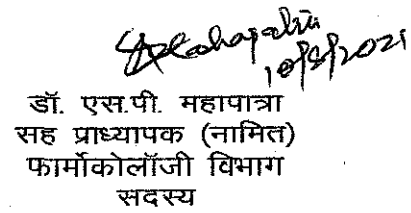 10/8/2021
डॉ. एस.पी. महापात्रा
सह प्राध्यापक (नामित)
फार्मोकोलॉजी विभाग
सदस्य